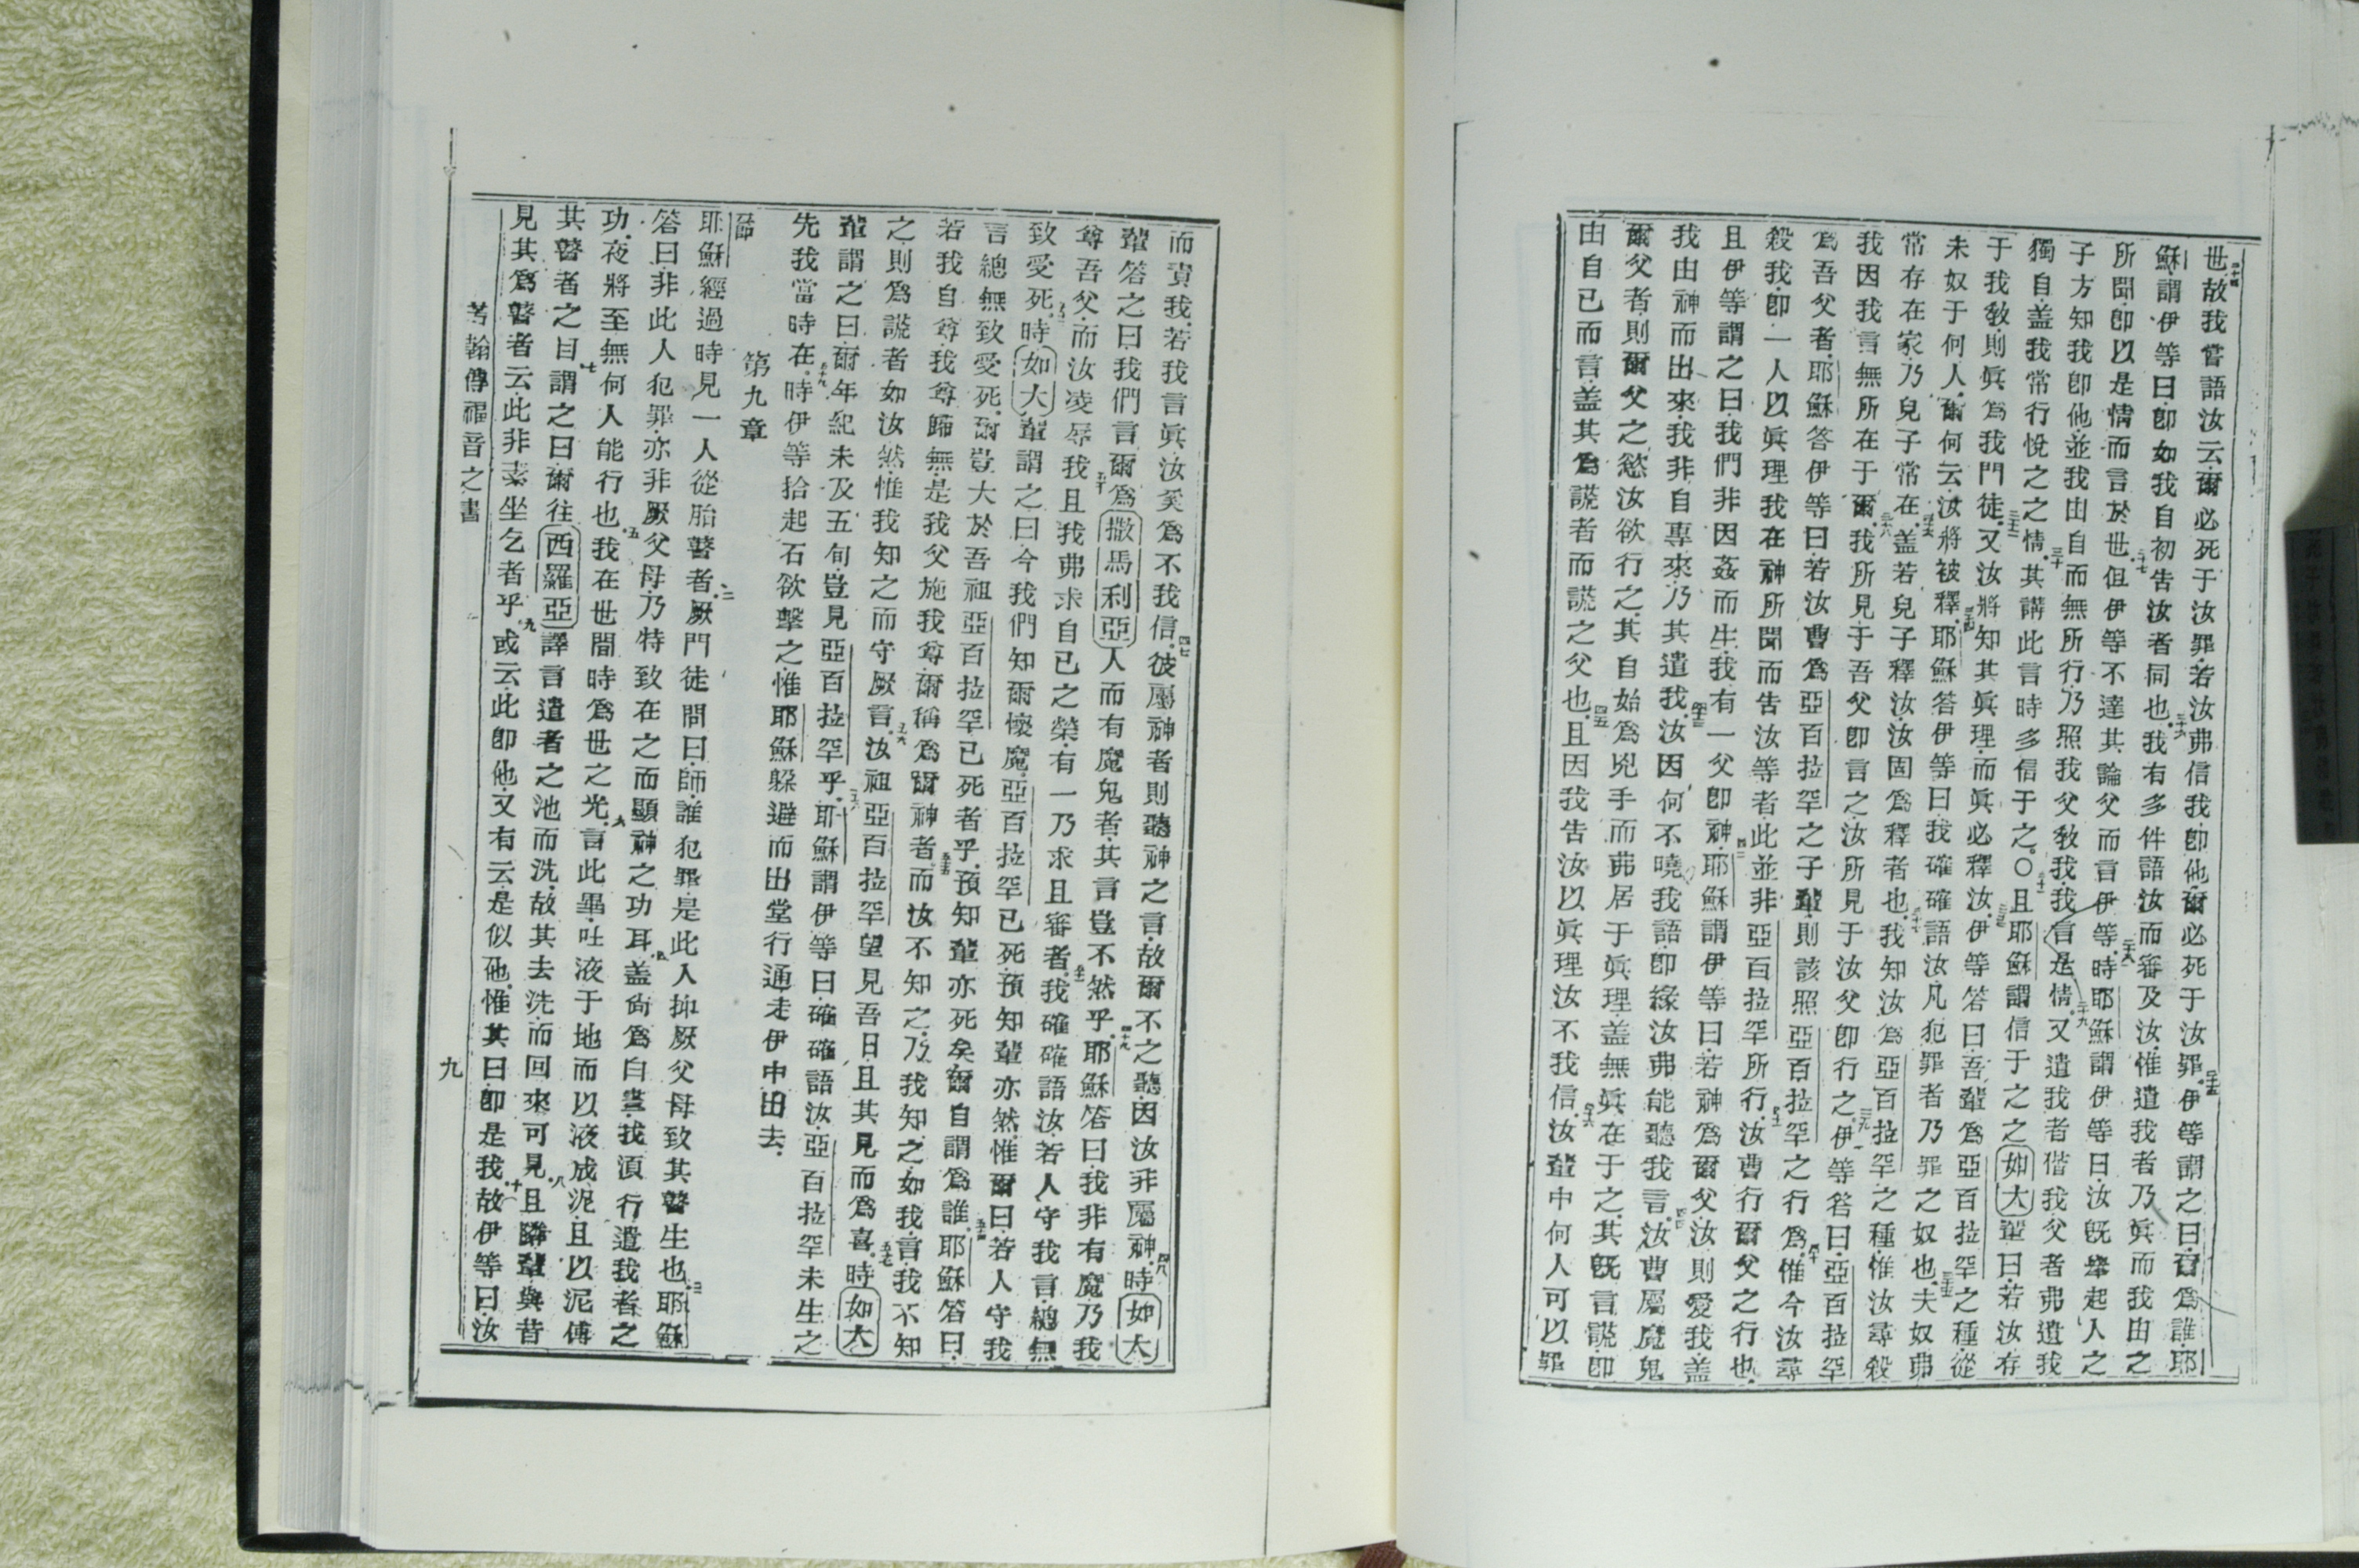 世故我嘗語汝云爾必死于汝罪若汝弗信我卽他爾必死于汝罪伊等謂之曰爾爲誰耶
蘇謂伊等曰卽如我自初告汝者同也我有多件語汝而審及汝惟遣我者乃眞而我由之
所聞卽以是情而言於世但伊等不達其論父而言伊等時耶蘇謂伊等曰汝旣擧起人之
子方知我卽他並我由自而無所行乃照我父敎我我言是情又遣我者偕我父者弗遺我
獨自盖我常行悅之之情其講此言時多信于之〇且耶蘇謂信于之之如大輩曰若汝存
于我敎則眞爲我門徒又汝將知其眞理而眞必釋汝伊等答曰吾輩爲亞百拉罕之種從
未奴于何人爾何云汝將被釋耶蘇答伊等曰我確確語汝凡犯罪者乃罪之奴也夫奴弗
常存在家乃兒子常在盖若兒子釋汝汝固爲釋者也我知汝爲亞百拉罕之種惟汝尋殺
我因我言無所在于爾我所見于吾父卽言之汝所見于汝父卽行之伊等答曰亞百拉罕
爲吾父者耶蘇答伊等曰若汝曹爲亞百拉罕之子輩則該照亞百拉罕之行爲惟今汝尋
殺我卽一人以眞理我在神所聞而告汝等者此並非亞百拉罕所行汝曹行爾父之行也
且伊等謂之曰我們非因姦而生我有一父卽神耶蘇謂伊等曰若神爲爾父汝則愛我盖
我由神而出來我非自專來乃其遣我汝因何不曉我語卽緣汝弗能聽我言汝曹屬魔鬼
爾父者則爾父之慾汝欲行之其自始爲兇手而弗居于眞理盖無眞在于之其旣言謊卽
由自己而言盖其爲謊者而謊之父也且因我告汝以眞理汝不我信汝輩中何人可以罪
而責我若我言眞汝奚爲不我信彼屬神者則聽神之言故爾不之聽因汝非屬神時如大
輩答之曰我們言爾爲撒馬利亞人而有魔鬼者其言豈不然乎耶蘇答曰我非有魔乃我
尊吾父而汝凌辱我且我弗求自己之榮有一乃求且審者我確確語汝若人守我言總無
致受死時如大輩謂之曰今我們知爾懷魔亞百拉罕已死預知輩亦然惟爾曰若人守我
言總無致受死爾豈大於吾祖亞百拉罕已死者乎預知輩亦死矣爾自謂爲誰耶蘇答曰
若我自尊我尊歸無是我父施我尊爾稱爲爾神者而汝不知之乃我知之如我言我不知
之則爲謊者如汝然惟我知之而守厥言汝祖亞百拉罕望見吾日且其見而爲喜時如大
輩謂之曰爾年紀未及五旬豈見亞百拉罕乎耶蘇謂伊等曰確確語汝亞百拉罕未生之
先我當時在時伊等拾起石欲擊之惟耶蘇躱避而出堂行通走伊中出去
第九章
一節
耶蘇經過時見一人從胎瞽者厥門徒問曰師誰犯罪是此人抑厥父母致其瞽生也耶蘇
答曰非此人犯罪亦非厥父母乃特致在之而顯神之功耳盖尙爲白晝我須行遣我者之
功夜將至無何人能行也我在世間時爲世之光言此畢吐液于地而以液成泥且以泥傅
其瞽者之目謂之曰爾往西羅亞譯言遣者之池而洗故其去洗而回來可見且隣輩與昔
見其爲瞽者云此非素坐乞者乎或云此卽他又有云是似他惟其曰卽是我故伊等曰汝
若翰傳福音之書
九